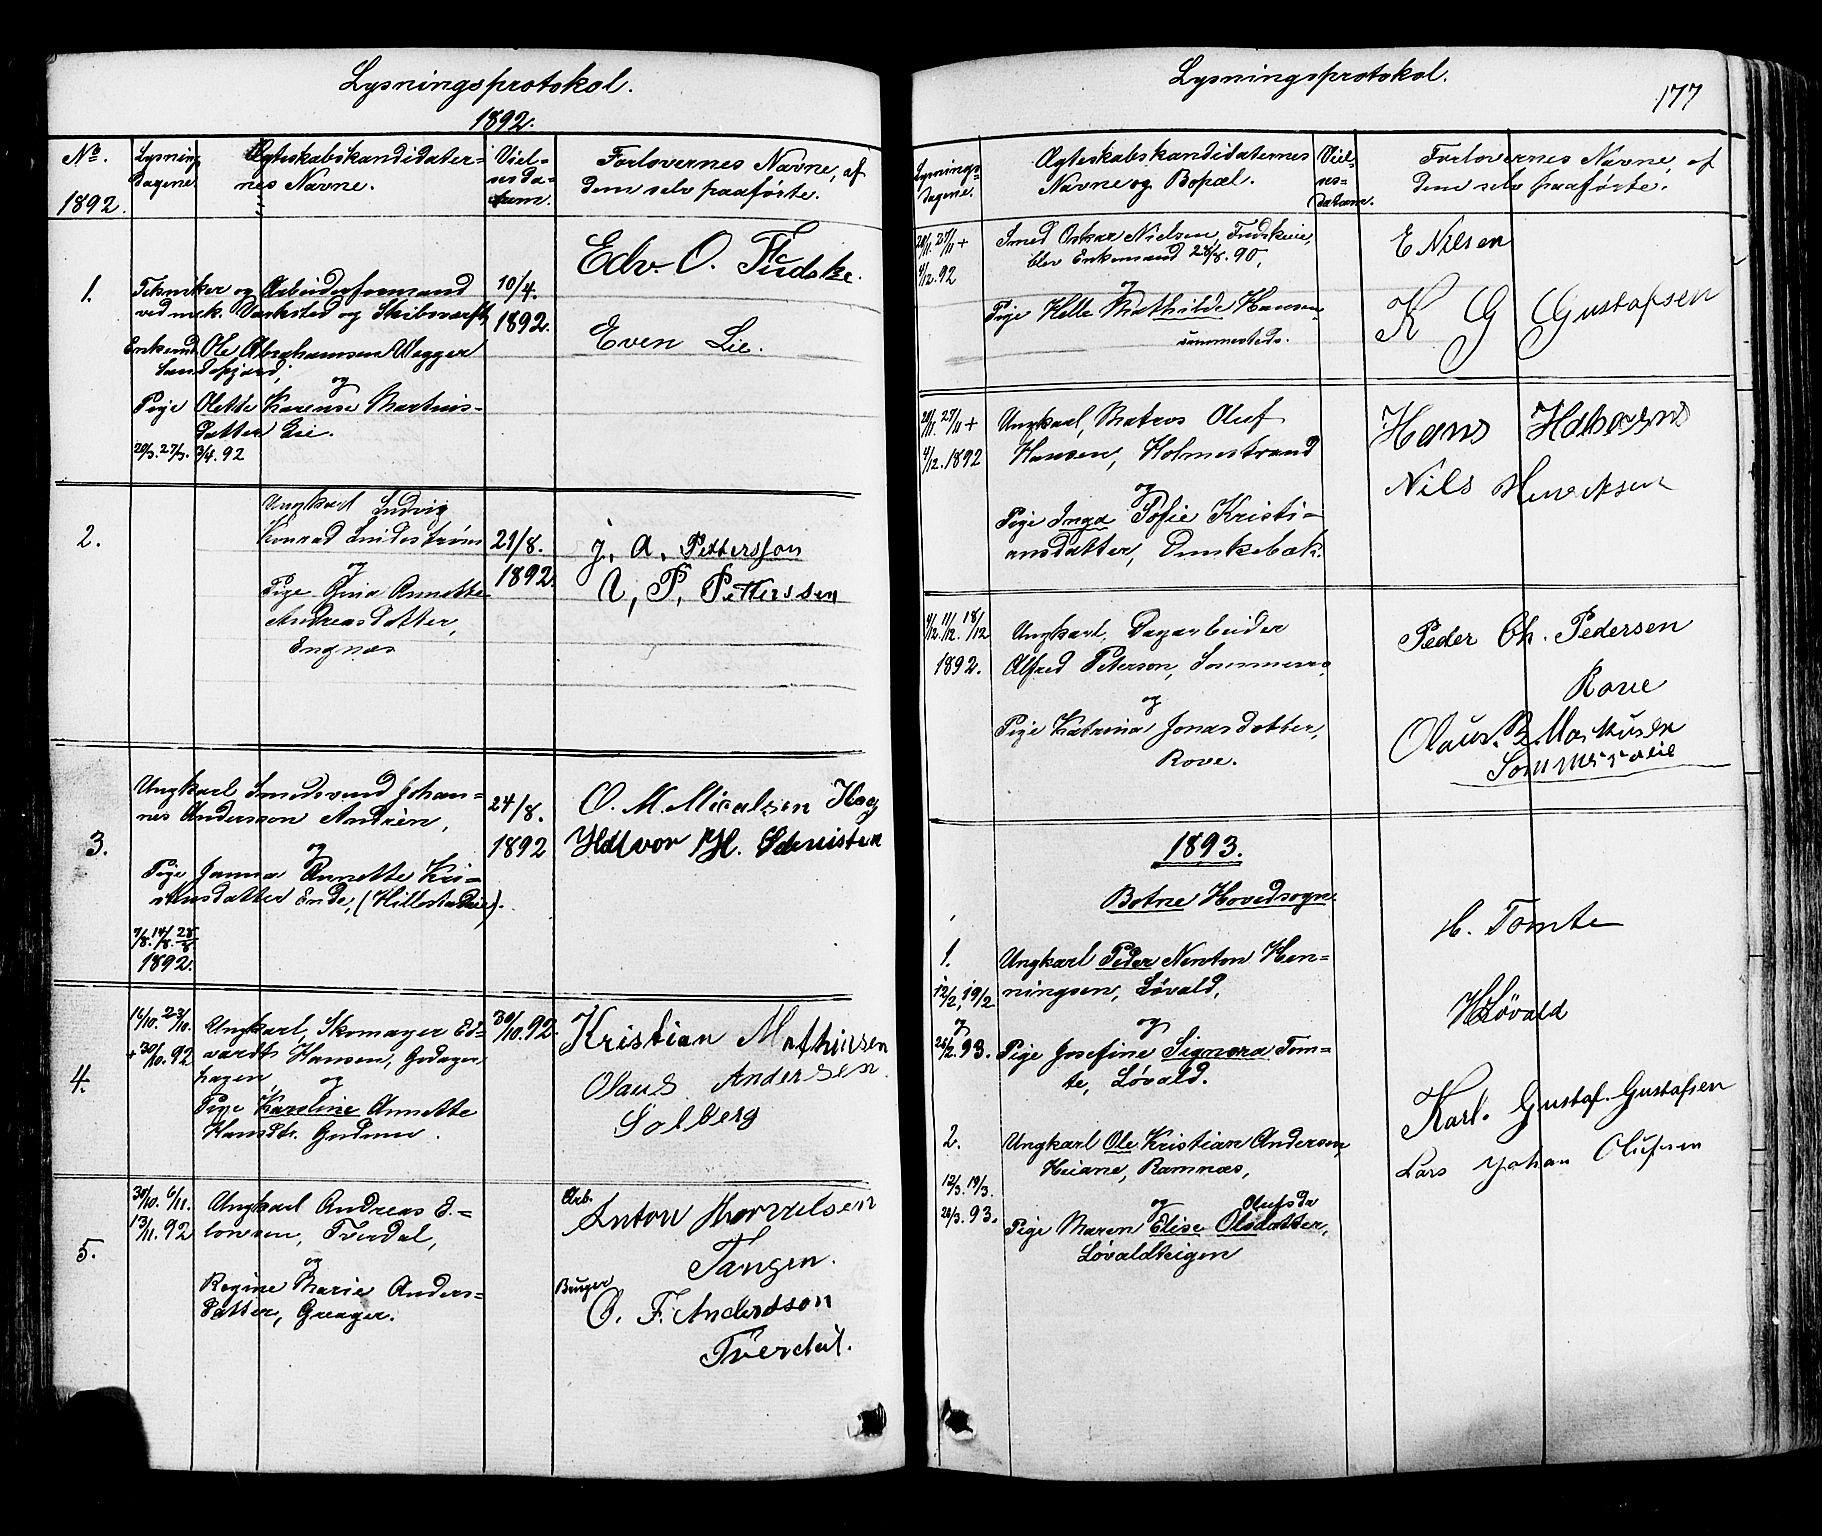 Lysningsprotokol.
1892.
No. 1892.
Lysning Dagene
Ægteskabskandidater=
nes Navne.
Viel=
sesda=
tum.
Forlovernes Navne, af
dem selv paaførte.
1.
Tekniker og Arbeiderformand
ved mek. Værksted og Skibsværft,
Enkemd Ole Abrahamsen Vegger
Sandefjord,
og
Pige Olette Karense Martinis=
datter Lie.
20/3. 27/3. 3/4. 92
10/4.
1892.
Edv. O. Fudske.
Even Lie.
2.
Ungkarl Ludvig
Konrad Lindestrøm
og
Pige Gina Annette
Andreasdatter,
Engnæs
21/8.
1892.
J. A. Pettersson
P. Petterssen
3.
Ungkarl Smedsvend Johan=
nes Andersson Andrèn,
og
Pige Janna Annette Kri=
stiansdatter Ende, (Hillestadeie).
7/8. 14/8. 28/8.
1892.
24/8.
1892
O. M. Micalsen Haag
Halvor H.
4.
16/10. 23/10.
+ 30/10. 92
Ungkarl, Skomager Ed=
vardt Hansen, Greager
hagen
og
Pige Karoline Annette
Hansdtr. Gudum.
30/10. 92.
Kristian Mathiesen
Olaus Andersen
Solberg
5.
30/10. 6/11.
13/11. 92
Ungkarl Andreas E=
lonsen, Tverdal,
og
Regine Marie Anders=
datter, Greager.
Arb.
Anton
Tangen.
Burger
O. F. Anderdson
Tverdal.
Lysningsprotokol.
177
Lysnings=
dagene.
Ægteskabskandidaternes
Navne og Bopæl.
Viel=
ses=
datum.
Forlovernes Navne, af
dem selv paaførte.
20/11. 27/11 +
4/12. 92
Smed Oskar Nielsen, Fudskeie,
blev Enkemand 24/8. 90,
og
Pige Helle Mathilde Hansen
sammesteds.
E Nilsen
K G Gustafsen
20/11. 27/11 +
4/12. 1892
Ungkarl, Matros Oluf
Hansen, Holmestrand
og
Pige Inga Sofie Kristi=
ansdatter, Dunkebæk.
Hans
Nils Henriksen
4/12. 11/12. 18/12
1892.
Ungkarl, Dagarbeider
Alfred Peterson, Sommeraa,
og
Pige Katrina Jonasdatter,
Rove.
Peder Ch. Pedersen
Rove
Olaus. B. Markusen
1893.
Botne Hovedsogn.
1.
12/2, 19/2
og
26/2. 93.
Ungkarl Peder Newton Hen=
ningsen, Løvald,
og
Pige Josefine Signora Tom=
te, Løvald.
H. Tomte
H Løvald
2.
12/3. 19/3.
26/3. 93.
Ungkarl Ole Kristian Andersen
Heiane, Ramnæs,
og
Olufsda
Pige Maren Elise Olsdatter,
Løvaldteigen
Karl. Gustaf. Gustafsen
Lars Johan Olufsen